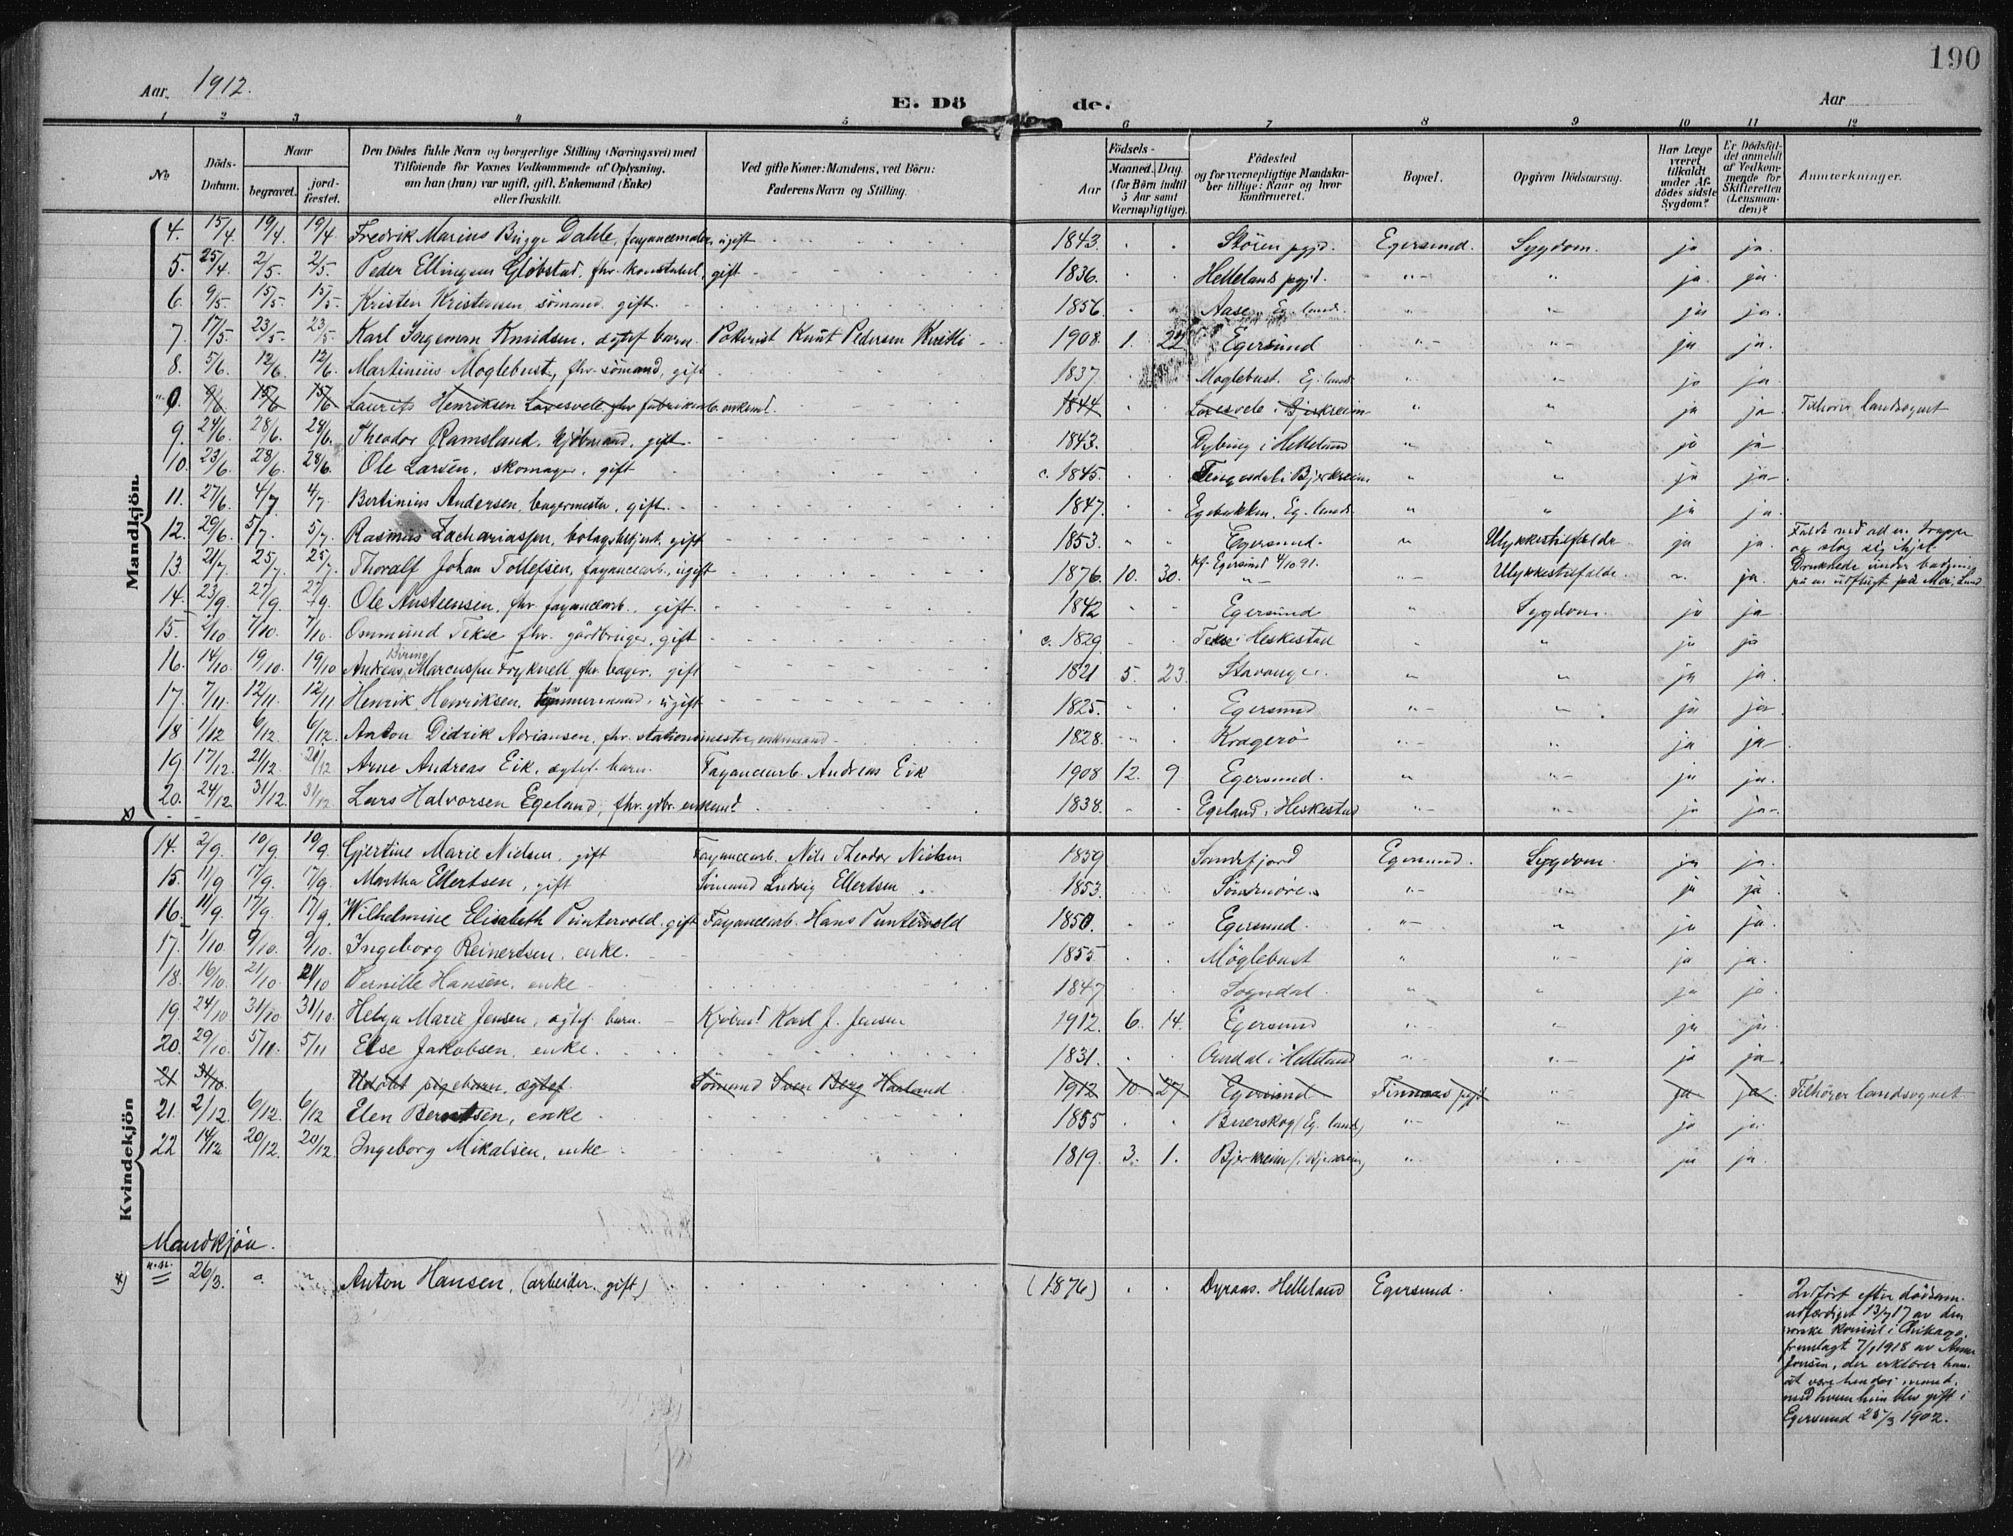 190
Aar. 1912.
E. Dö de.
Aar
1 2 3 4 5 6 7 8 9 10 11 12
No
Döds-Datum.
Naar
begravet.
jord-fæstet.
Den Dödes fulde Navn og borgerlige Stilling (Næringsvei) med
Tilföiende for Voxnes Vedkommende af Oplysning,
om han (hun) var ugift, gift, Enkemand (Enke)
eller fraskilt.
Ved gifte Koner: Mandens, ved Börn:
Faderens Navn og Stilling.
Födsels-
Aar
Maaned. Dag
(for Börn indtil
5 Aar samt
Værnepligtige).
Födested
og for værnepligtige Mandska-
ber tillige: Naar og hvor
konfirmeret.
Bopæl.
Opgiven Dödsaarsag.
Har Læge
været
tilkaldt
under Af-
dödes sidste
Sygdom?
Er Dödsfal-
det anmeldt
af Vedkom-
mende for
Skifteretten
(Lensman-
den)?
Anmærkninger.
Mandkjön.
4. 15/4. 19/4. 19/4. Fredrik Marius Bugge Dahle, fayancemaler, ugift 1843. Stören pgjd. Egersund. Sygdom. ja ja.
5. 25/4. 2/5. 2/5. Peder Ellingsen Globstad, fhv. konstabel, gift 1836. Hellelands pgjd. "- " ja. ja.
6. 9/5. 15/5. 15/5. Kristen Kristensen sömand. gift. 1856. Aase, Eg. lands. " "- ja ja.
7. 17/5. 23/5. 23/5. Karl Ingemann Knudsen, ægtef. barn Pedersen 1908. 1. 22. Egersund "- "- ja ja.
8. 5/6. 12/6. 12/6. Martinius Moglebust, fhv. sömand, gift 1837. Moglebust. Eg. lands. " " ja ja.
9/6 15/6 15/6 Laurits Henriksen Laxesvele, fhv fabrikarb. enkemd. 1844 Laxesvele i Bjerkreim " " ja ja Tilhører landsognet
9. 24/6. 28/6. 28/6. Theodor Ramsland, kjöbmand, gift. 1843. Dybing i Helleland " " ja ja
10. 23/6. 28/6. 28/6. Ole Larsen, skomager, gift c. 1845. i Bjerkreim " " ja ja
11. 27/6. 4/7 4/7 Bertinius Andersen, bagermester, gift. 1847. Egebakken, Eg. lands. " " ja ja.
12. 29/6. 5/7. 5/7. Rasmus Zachariassen, bolagsbetjent, gift 1853. Egersund. "- Ulykkestilfælde. ja ja. Faldt ned ad en trappe
og slog sig ihjel.
13. 21/7. 25/7. 25/7. Thoralf Johan Tollefsen, fayancearb., ugift 1876. 10. 30. kf. Egersund 4/10 91. "- Ulykkestilfælde. ". ja. Druknede under badning
på en udflugt
14. 23/9. 27/9. 27/9. Ole Austensen, fhv fayancearb., gift. 1842 Egersund " Sygdom. ja ja
15. 2/10 7/10. 7/10. Ommund Tekse fhv. gårdbruger, gift c. 1829. Tekse i Heskestad " " ja ja
Biring
16. 14/10 19/10. 19/10 Andreas Marcussen Fryknell fhv. bager, gift 1821 5. 23. Stavanger. " " ja ja.
17. 7/11. 12/11. 12/11 Henrik Henriksen, tömmermand, ugift 1825. Egersund " "- ja ja.
18 1/12 6/12. 6/12. Anton Didrik Adriansen, fhv. stationsmester, enkemand 1828. Kragerö "- " ja ja
19. 17/12. 21/12. 21/12 Arne Andreas Eik, ægtef. barn. Fayancearb. Andreas Eik 1908 12. 9 Egersund. " "- ja ja.
20. 24/12. 31/12. 31/12 Lars Halvorsen Egeland, fhv. gdbr. enkemd 1838. Egeland i Heskestad "- " ja ja
Kvindekjön
14. 2/9. 10/9. 10/9 Gjertine Marie Nielsen, gift Fayancearb. Nils Theodor Nielsen 1859 Sandefjord Egersund. Sygdom. ja ja.
15. 11/9 17/9. 17/9. Martha Ellertsen, gift Sömand Ludvig Ellertsen 1853. Söndmöre. "- "- ja ja.
16. 11/9. 17/9. 17/9. Wilhelmine Elisabeth Puntervold, gift Fayancearb. Hans Puntervold 1850. Egersund. "- " ja ja.
17. 1/10. 9/10. 9/10. Ingeborg Reinertsen, enke. 1855 Möglebust " "- ja ja.
18. 16/10. 21/10 21/10 Pernille Hansen, enke 1847 Sogndal " " ja ja
19. 24/10 31/10 31/10. Helga Marie Jensen, ægtef. barn. Kjöbmd Karl J. Jensen 1912. 6. 14. Egersund "- " ja ja.
20. 29/10. 5/11. 5/11 Else Jakobsen, enke. 1831. i Helleland "- "- ja ja
21 31/10. Udöbt pigebarn, ægtef. Sömand Sven Berg Haaland 1912 10. 27 Egersund Finnaas pgjd "- ja ja. Tilhører landsognet
21. 2/12. 6/12. 6/12 Elen Berntsen, enke 1855 Buerskog (Eg. land) "- " ja ja
22 14/12 20/12. 20/12. Ingeborg Mikalsen, enke 1819. 3. 1. Bjerkreim (i Bjerkreim) " " ja ja.
Mandkjön.
26/3. " " Anton Hansen, (arbeider. gift) (1876) Dyraas. Helleland Egersund.
Indfört efter dödsan.
utfærdiget 13/7 17 av den
norske konsul i Chikago.
fremlagt 7/1 1918 av
Jensen, der erklærer ham
at være hendes mand,
med hvem hun blev gift i
Egersund 25/3 1902.